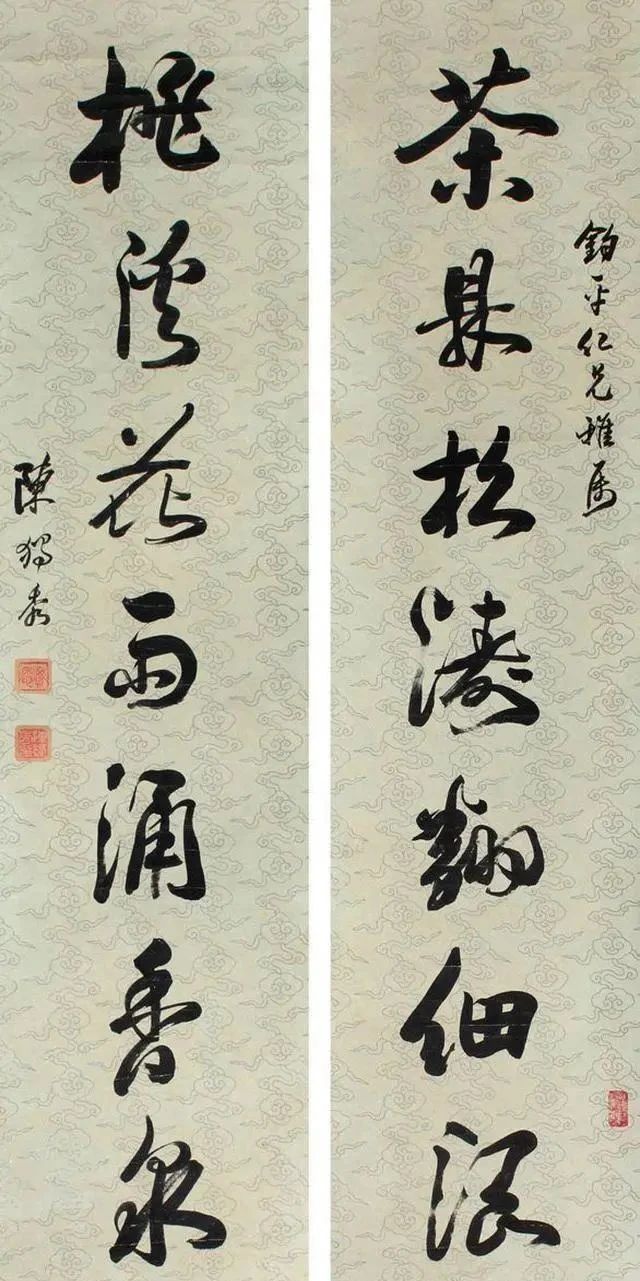 鈞平仁兄雅属
茶鼎松濤翻細浪
桃溪花雨涌香泉
陳獨秀